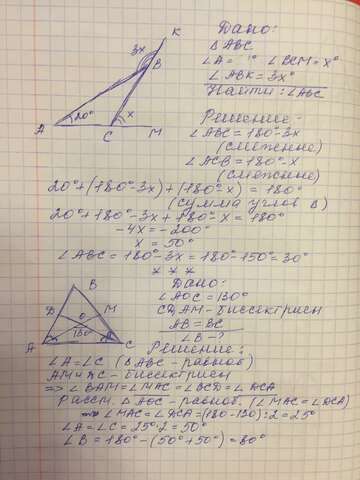 Дано:
△ABC
∠A= ° ∠BCM = x°
∠ABK = 3x°
Найти: ∠ABC
K
3x
B
A
20°
C
x
M
Решение -
∠ABC = 180°-3x
(смежные)
∠ACB = 180°-x
(смежные)
20°+(180°-3x)+(180°-x) = 180°
(сумма углов △)
20°+180°-3x+180°-x = 180°
-4x = -200°
x = 50°
∠ABC = 180°-3x = 180°-150° = 30°
* * *
Дано:
∠AOC = 130°
AM - биссектрисы
AB = BC
∠B - ?
B
D
O
M
130°
A
C
Решение:
∠A = ∠C (△ABC - равноб)
AM и DC - биссектрисы
=> ∠BAM = ∠MAC = ∠BCD = ∠DCA
Рассм. △AOC - равноб. (∠MAC = ∠DCA)
=> ∠MAC = ∠DCA = (180-130):2 = 25°
∠A = ∠C = 25°·2 = 50°
∠B = 180° - (50°+50°) = 80°